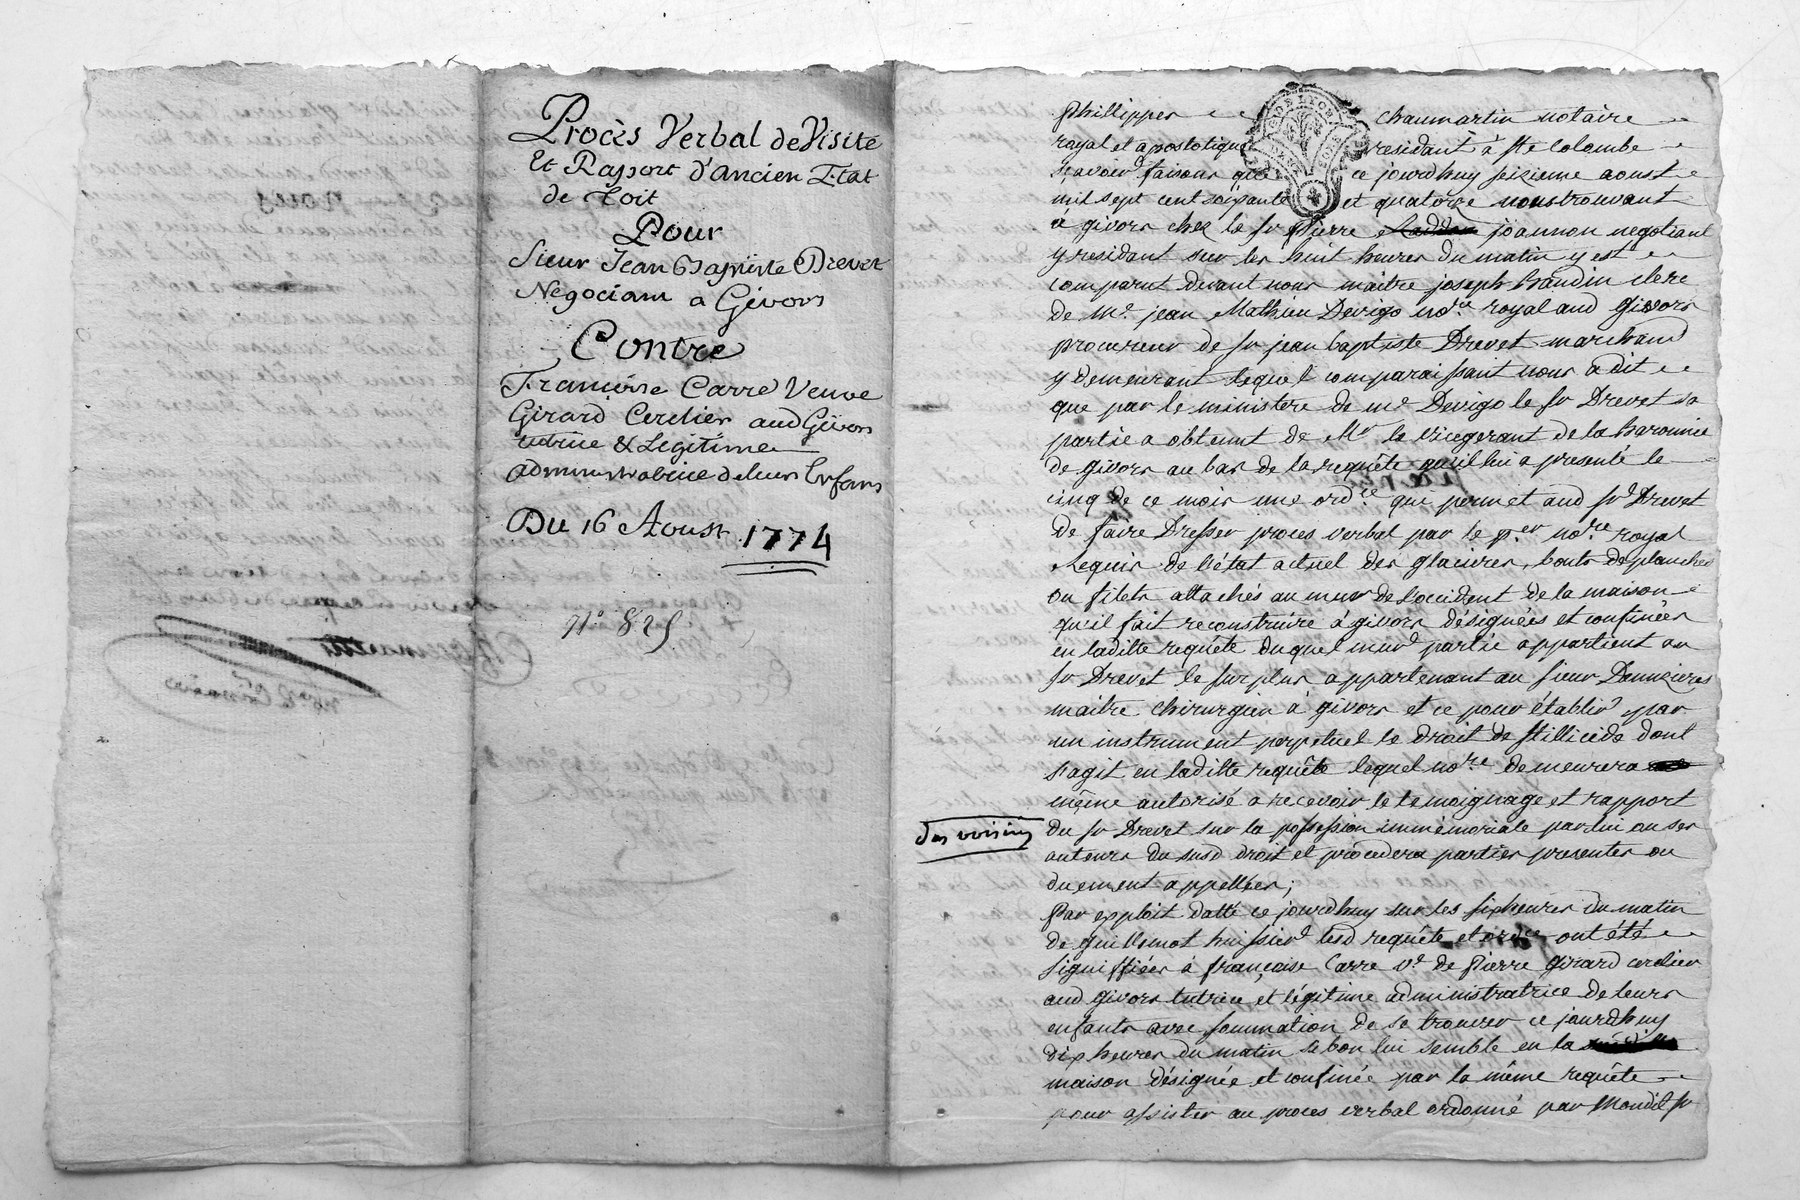 Procès Verbal de Visite
Et Rapport d'ancien Etat
de Toit
Pour
Sieur Jean Baptiste Drevet
Negociant a Givors
Contre
Françoise Carre Veuve
Girard Cordier aud Givors
tutrice & Legitime
administratrice de leurs Enfans
Du 16 Aoust 1774
n° 825
Phillippes chaumartin notaire
royal et apostolique residant à Ste Colombe
scavoir faisons que ce jourdhuy seizieme aoust
mil sept cent soixante et quatorze nous trouvant
à givors chez le sr Pierre joannon negotiant
y residant sur les huit heures du matin y est
comparut devant nous maitre joseph baudin clerc
de me. jean Mathieu Devigo nore. royal aud givors
procureur de sr jean baptiste Drevet marchand
y demeurant lequel comparaissant nous a dit
que par le ministere de me Devigo le sr Drevet sa
partie a obtenut de Mr le vicegerant de la baronnie
de givors au bas de la requête qu'il lui a presenté le
cinq de ce mois une ordce qui permet aud sr Drevet
de faire Dresser proces verbal par le p.er no.re royal
requis de l'état actuel des glacieres, bouts de planches
ou filets attachés au mur de l'occident de la maison
qu'il fait reconstruire à givors désignées et confinées
en laditte requête duquel mur partie appartient au
sr Drevet le surplus appartenant au sieur Dannizieres
maitre chirurgien à givors et ce pour établir par
un instrument perpetuel le droit de stillicide dont
s'agit en laditte requête lequel no.re demeurera
même autorisé a recevoir le temoignage et rapport
des voisins
du sr Drevet sur la possession immémoriale par lui ou ses
auteurs du susd droit et procedera parties presentes ou
duement appellées;
Par exploit datté ce jourdhuy sur les six heures du matin
de guillemot huissier lesd requête et ordce ont été
signiffiées à françoise Carre ve de Pierre girard cordier
aud givors tutrice et légitime administratrice de leurs
enfants avec sommation de se trouver ce jourdhuy
dix heures du matin si bon lui semble en la
maison désignée et confinée par la même requête
pour assister au proces verbal ordonné par mondit sr